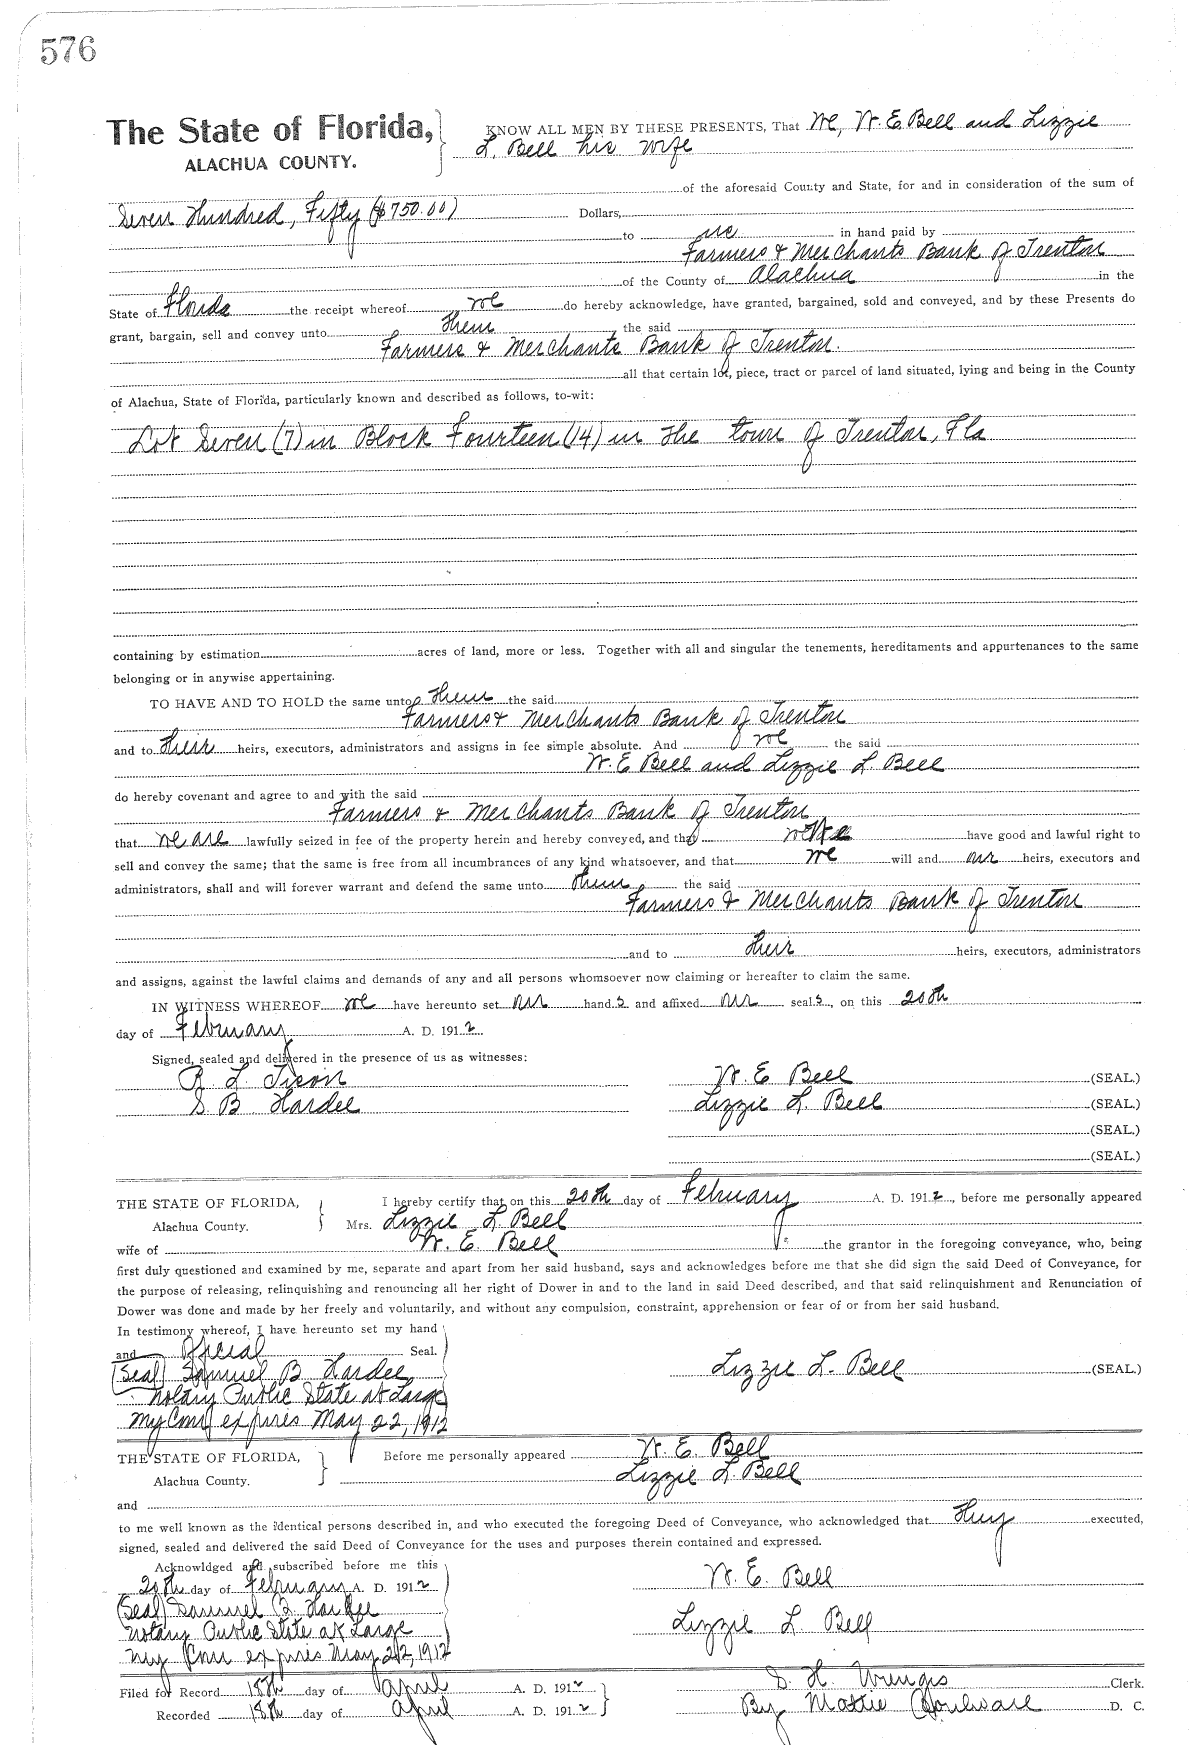 576
The State of Florida, KNOW ALL MEN BY THESE PRESENTS, That We, W. E. Bell and Lizzie
ALACHUA COUNTY. L. Bell his wife
of the aforesaid County and State, for and in consideration of the sum of
Seven Hundred, Fifty ($750.00) Dollars,
to us in hand paid by
Farmers & Merchants Bank of Trenton
of the County of Alachua in the
State of Florida the receipt whereof we do hereby acknowledge, have granted, bargained, sold and conveyed, and by these Presents do
grant, bargain, sell and convey unto them the said
Farmers & Merchants Bank of Trenton.
all that certain lot, piece, tract or parcel of land situated, lying and being in the County
of Alachua, State of Florida, particularly known and described as follows, to-wit:
Lot Seven (7) in Block Fourteen (14) in the town of Trenton, Fla
containing by estimation acres of land, more or less. Together with all and singular the tenements, hereditaments and appurtenances to the same
belonging or in anywise appertaining.
TO HAVE AND TO HOLD the same unto them the said
Farmers & Merchants Bank of Trenton
and to their heirs, executors, administrators and assigns in fee simple absolute. And we the said
W. E Bell and Lizzie L. Bell
do hereby covenant and agree to and with the said
Farmers & Merchants Bank of Trenton
that we are lawfully seized in fee of the property herein and hereby conveyed, and that we have good and lawful right to
sell and convey the same; that the same is free from all incumbrances of any kind whatsoever, and that we will and our heirs, executors and
administrators, shall and will forever warrant and defend the same unto them the said
Farmers & Merchants Bank of Trenton
and to their heirs, executors, administrators
and assigns, against the lawful claims and demands of any and all persons whomsoever now claiming or hereafter to claim the same.
IN WITNESS WHEREOF we have hereunto set our hand s and affixed our seal s, on this 20th
day of February A. D. 191 2
Signed, sealed and delivered in the presence of us as witnesses:
R. L. Tison W. E Bell (SEAL.)
S. B Hardee Lizzie L. Bell (SEAL.)
(SEAL.)
(SEAL.)
THE STATE OF FLORIDA, I hereby certify that on this 20th day of February A. D. 191 2, before me personally appeared
Alachua County. Mrs. Lizzie L. Bell
wife of W. E. Bell the grantor in the foregoing conveyance, who, being
first duly questioned and examined by me, separate and apart from her said husband, says and acknowledges before me that she did sign the said Deed of Conveyance, for
the purpose of releasing, relinquishing and renouncing all her right of Dower in and to the land in said Deed described, and that said relinquishment and Renunciation of
Dower was done and made by her freely and voluntarily, and without any compulsion, constraint, apprehension or fear of or from her said husband.
In testimony whereof, I have hereunto set my hand
and official Seal.
(Seal) Samuel B Hardee Lizzie L. Bell (SEAL)
Notary Public State at Large
My Com expires May 22, 1912
THE STATE OF FLORIDA, Before me personally appeared W. E. Bell
Alachua County. Lizzie L. Bell
and
to me well known as the identical persons described in, and who executed the foregoing Deed of Conveyance, who acknowledged that they executed,
signed, sealed and delivered the said Deed of Conveyance for the uses and purposes therein contained and expressed.
Acknowldged and subscribed before me this
20th day of February A. D. 191 2 W. E. Bell
(Seal) Samuel B. Hardee
Notary Public State at Large Lizzie L. Bell
My Com expires May 22, 1912
Filed for Record 18th day of April A. D. 191 2 S. H. Wienges Clerk.
Recorded 18th day of April A. D. 191 2 By Mattie Boulware D. C.